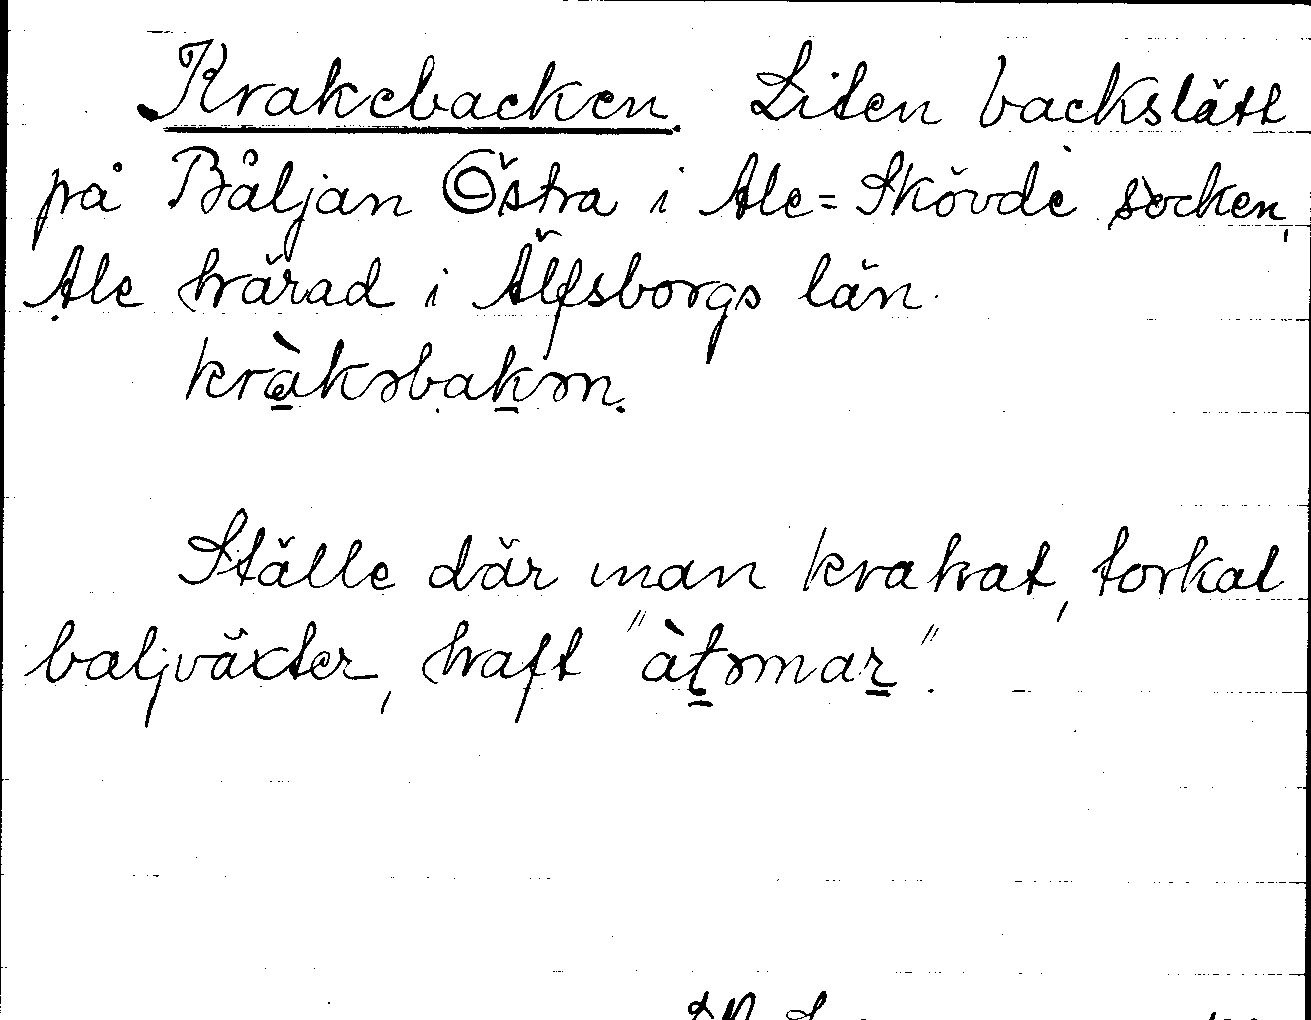 Krakebacken. Liten backslätt
på Båljan Östra i Ale-Skövde socken,
Ale härad i Älfsborgs län.
kràkəbakən.
Ställe där man krakat, torkat
baljväxter, haft "àtəmar".